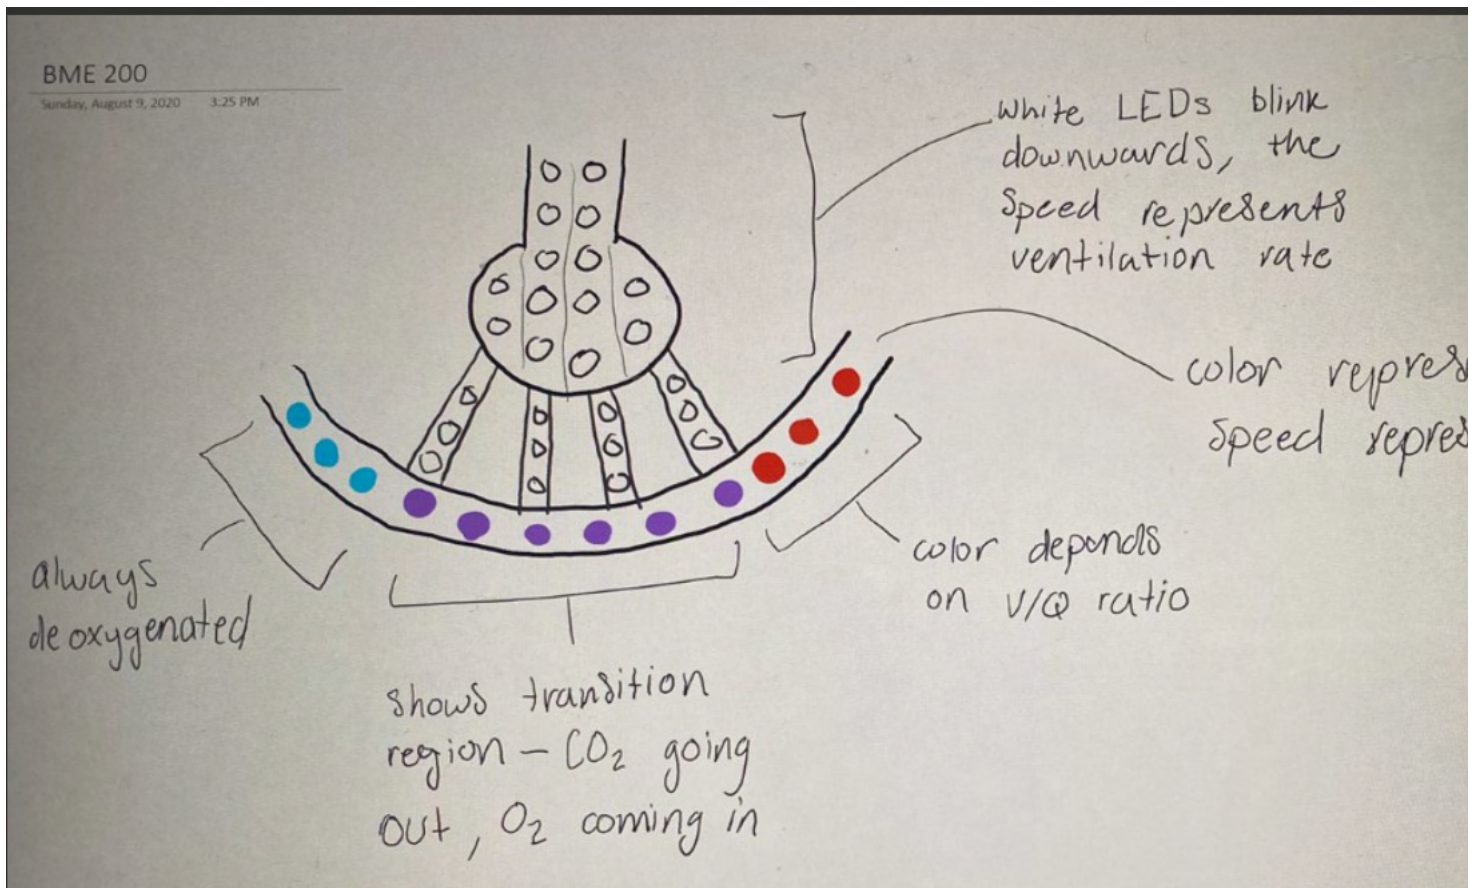 BME 200
Sunday, August 9, 2020 3:25 PM
White LEDs blink
downwards, the
speed represents
ventilation rate
color repres
speed repres
color depends
on V/Q ratio
always
deoxygenated
shows transition
region – CO₂ going
out, O₂ coming in